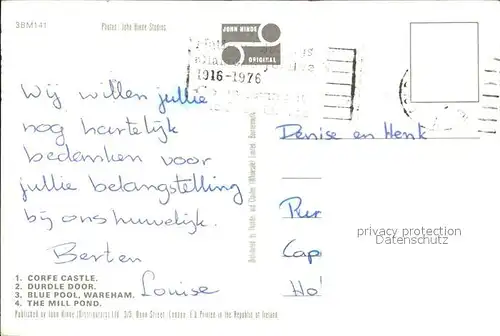 3BM141
Photos: John Hinde Studios
JOHN HINDE
ORIGINAL
1916-1976
Wij willen jullie
nog hartelijk
bedanken voor
jullie belangstelling
bij ons huwelijk.
Berten
Louise
Denise en Henk
Pur
Cap
Ho
privacy protection
Datenschutz
1. CORFE CASTLE.
2. DURDLE DOOR.
3. BLUE POOL, WAREHAM.
4. THE MILL POND.
Published by John Hinde (Distributors) Ltd. 3/5, Conn Street, London. E.8 Printed in the Republic of Ireland.